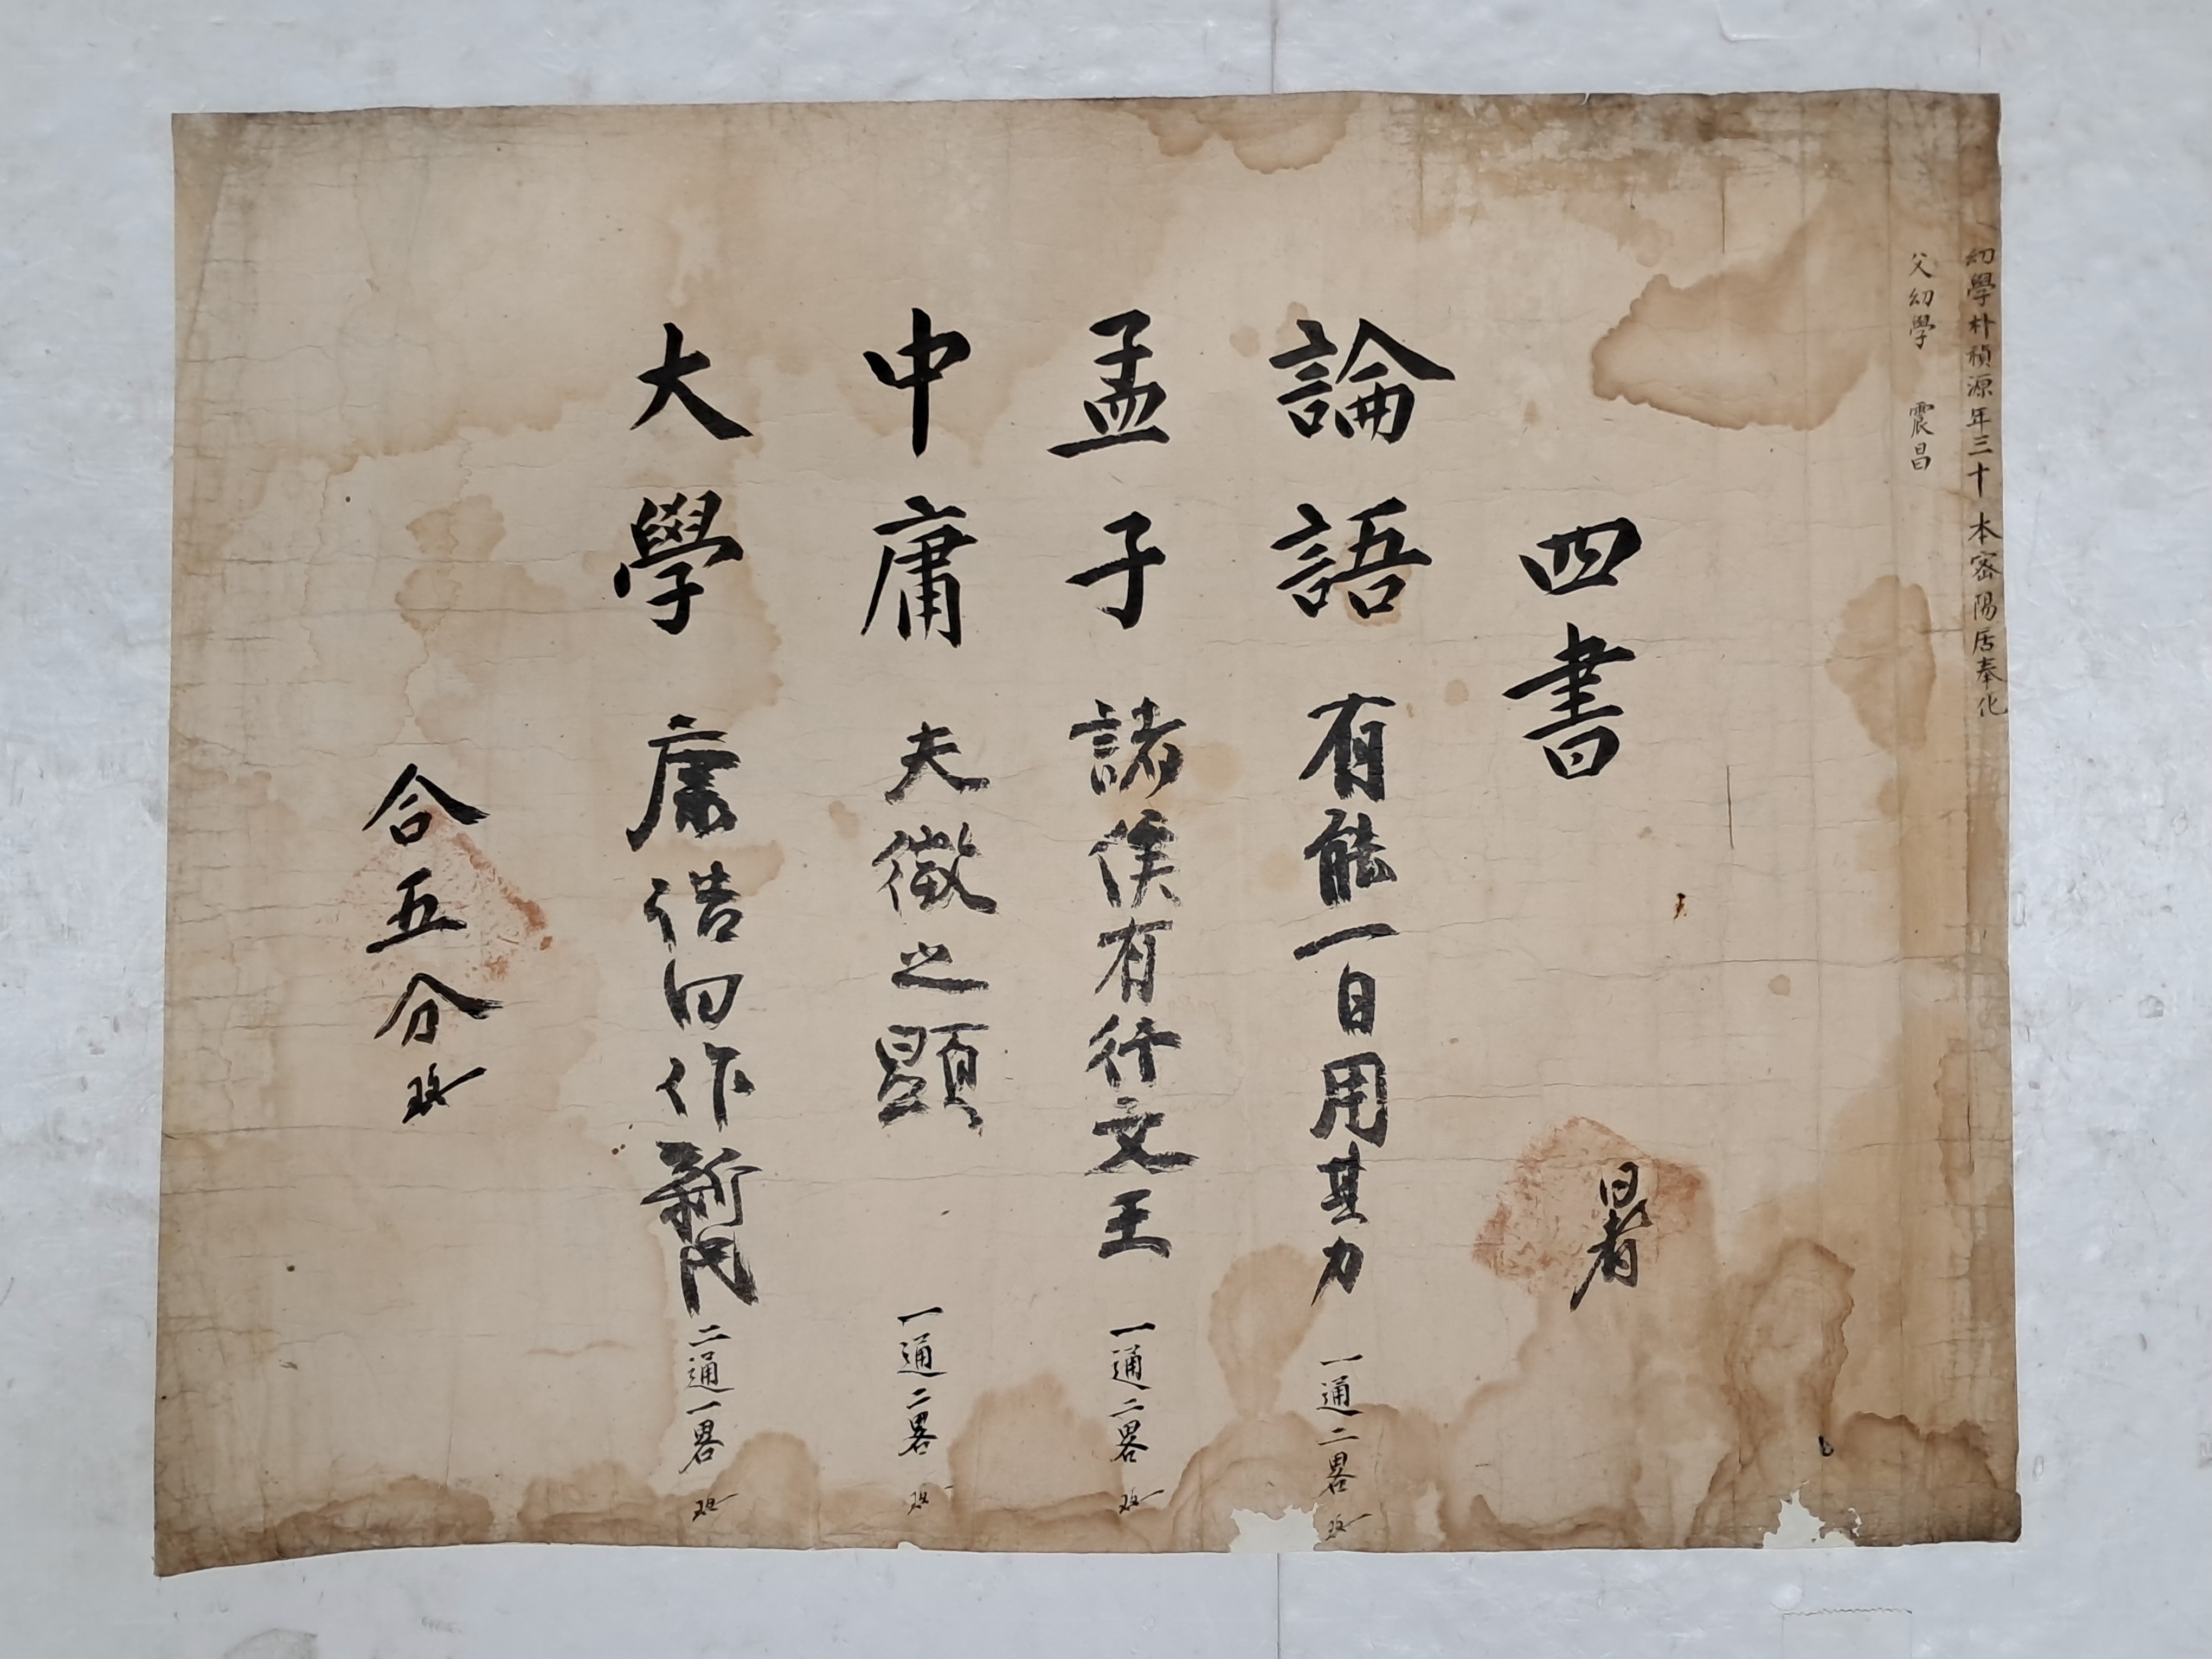 幼學朴禎源年三十 本密陽居奉化
父幼學 震昌
四書
論語 有能一日用其力 一通二畧
孟子 諸侯有行文王 一通二畧
中庸 夫微之顯 一通二畧
大學 康誥曰作新 二通一畧
合五分